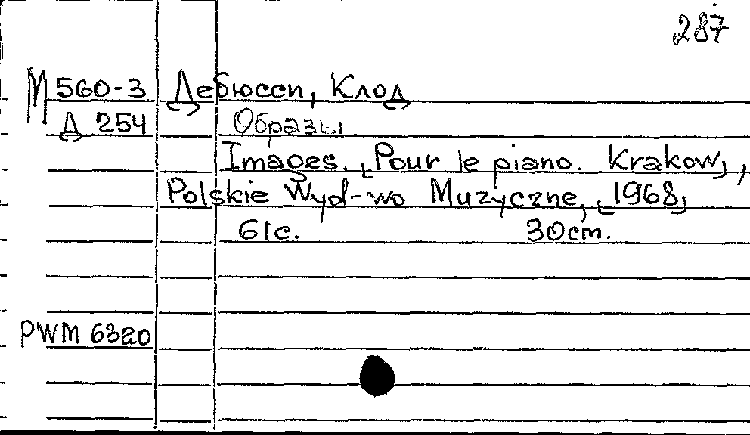 287
М 560-3 Дебюсси, Клод
Д 254 Образы
Images. [Pour le piano. Krakow],
Polskie Wyd-wo Muzyczne, [1968]
61с. 30cm.
PWM 6320